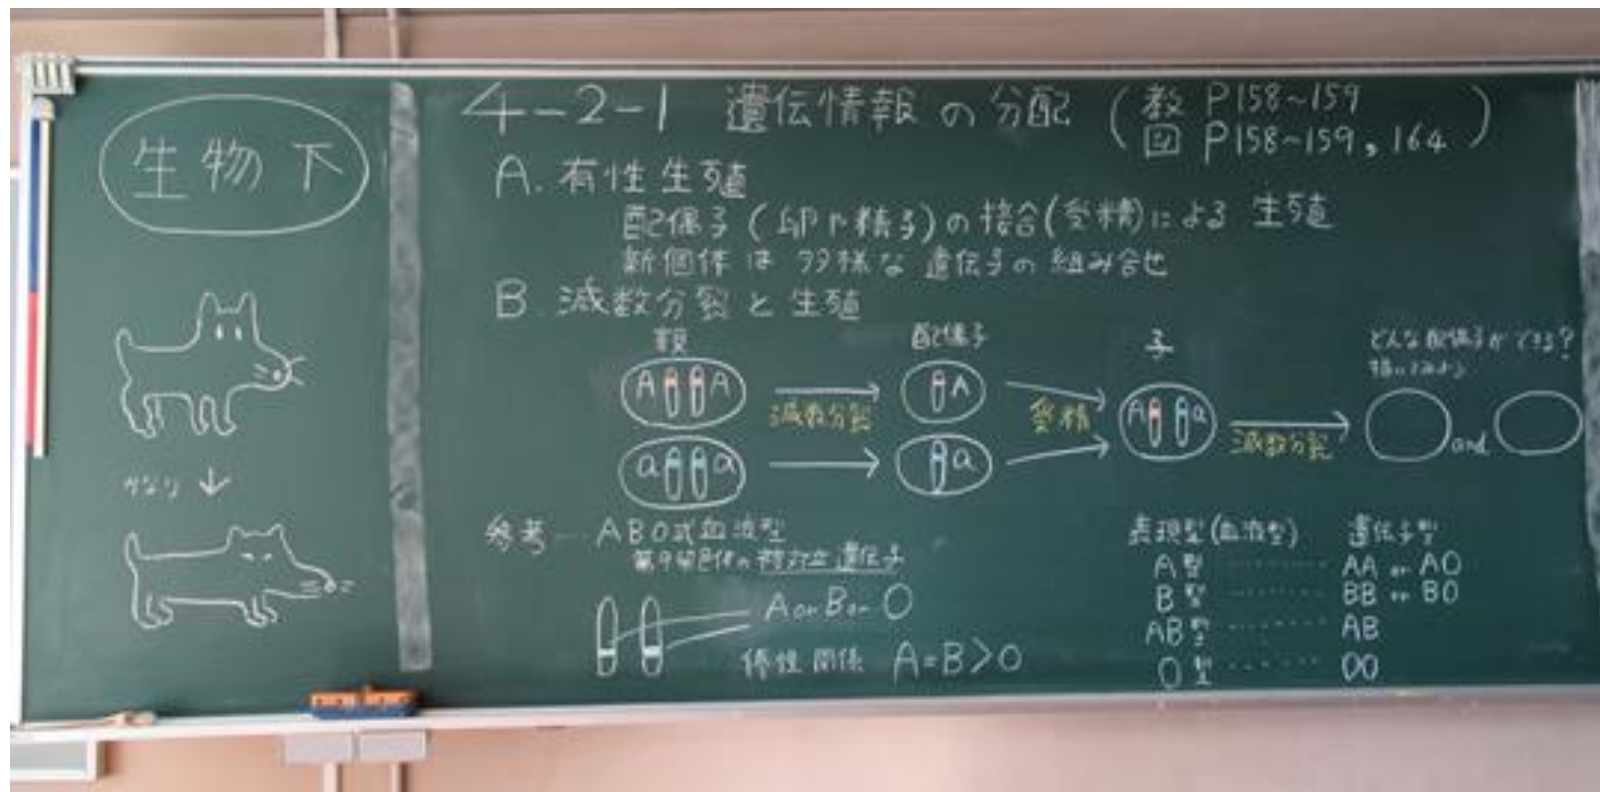 生物 下
4-2-1 遺伝情報の分配 (教 P158~159
図 P158~159, 164)
A. 有性生殖
配偶子(卵や精子)の接合(受精)による 生殖
新個体は 多様な 遺伝子の 組み合せ
B. 減数分裂と生殖
親 配偶子 子 どんな配偶子ができる?
描いてみよう
A A 減数分裂 A 受精 A a 減数分裂 and
a a a
参考 … ABO式血液型
第9染色体の複対立遺伝子
A or B or O
優性関係 A=B>O
表現型(血液型) 遺伝子型
A型 ……… AA or AO
B型 ……… BB or BO
AB型 ……… AB
O型 ……… OO